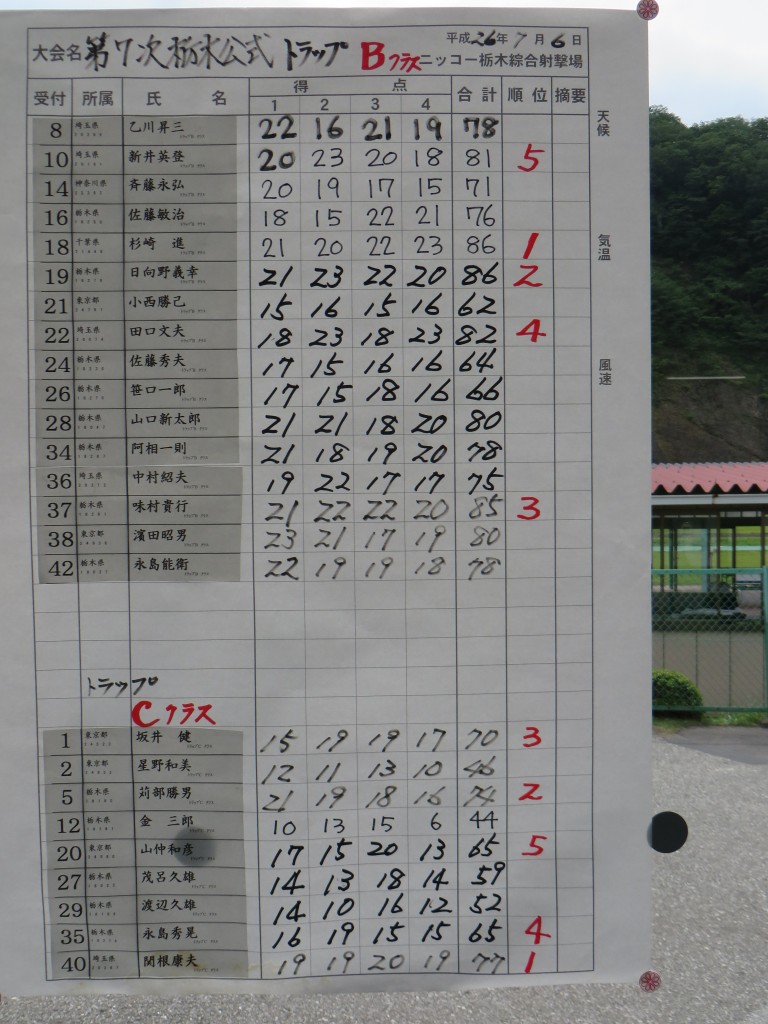 大会名 第7次栃木公式 トラップ Bクラス 平成26年7月6日
ニッコー栃木綜合射撃場
受付 所属 氏名 得点 合計 順位 摘要
1 2 3 4
8 埼玉県 乙川昇三 22 16 21 19 78
10 埼玉県 新井英登 20 23 20 18 81 5
14 神奈川県 斉藤永弘 20 19 17 15 71
16 栃木県 佐藤敏治 18 15 22 21 76
18 千葉県 杉崎 進 21 20 22 23 86 1
19 栃木県 日向野義幸 21 23 22 20 86 2
21 東京都 小西勝己 15 16 15 16 62
22 埼玉県 田口文夫 18 23 18 23 82 4
24 栃木県 佐藤秀夫 17 15 16 16 64
26 栃木県 笹口一郎 17 15 18 16 66
28 栃木県 山口新太郎 21 21 18 20 80
34 栃木県 阿相一則 21 18 19 20 78
36 埼玉県 中村紹夫 19 22 17 17 75
37 栃木県 味村貴行 21 22 22 20 85 3
38 東京都 濱田昭男 23 21 17 19 80
42 栃木県 永島能衛 22 19 19 18 78
トラップ
Cクラス
1 東京都 坂井 健 15 19 19 17 70 3
2 東京都 星野和美 12 11 13 10 46
5 栃木県 苅部勝男 21 19 18 16 74 2
12 栃木県 金 三郎 10 13 15 6 44
20 東京都 山仲和彦 17 15 20 13 65 5
27 栃木県 茂呂久雄 14 13 18 14 59
29 栃木県 渡辺久雄 14 10 16 12 52
35 栃木県 永島秀晃 16 19 15 15 65 4
40 埼玉県 関根康夫 19 19 20 19 77 1
天候
気温
風速